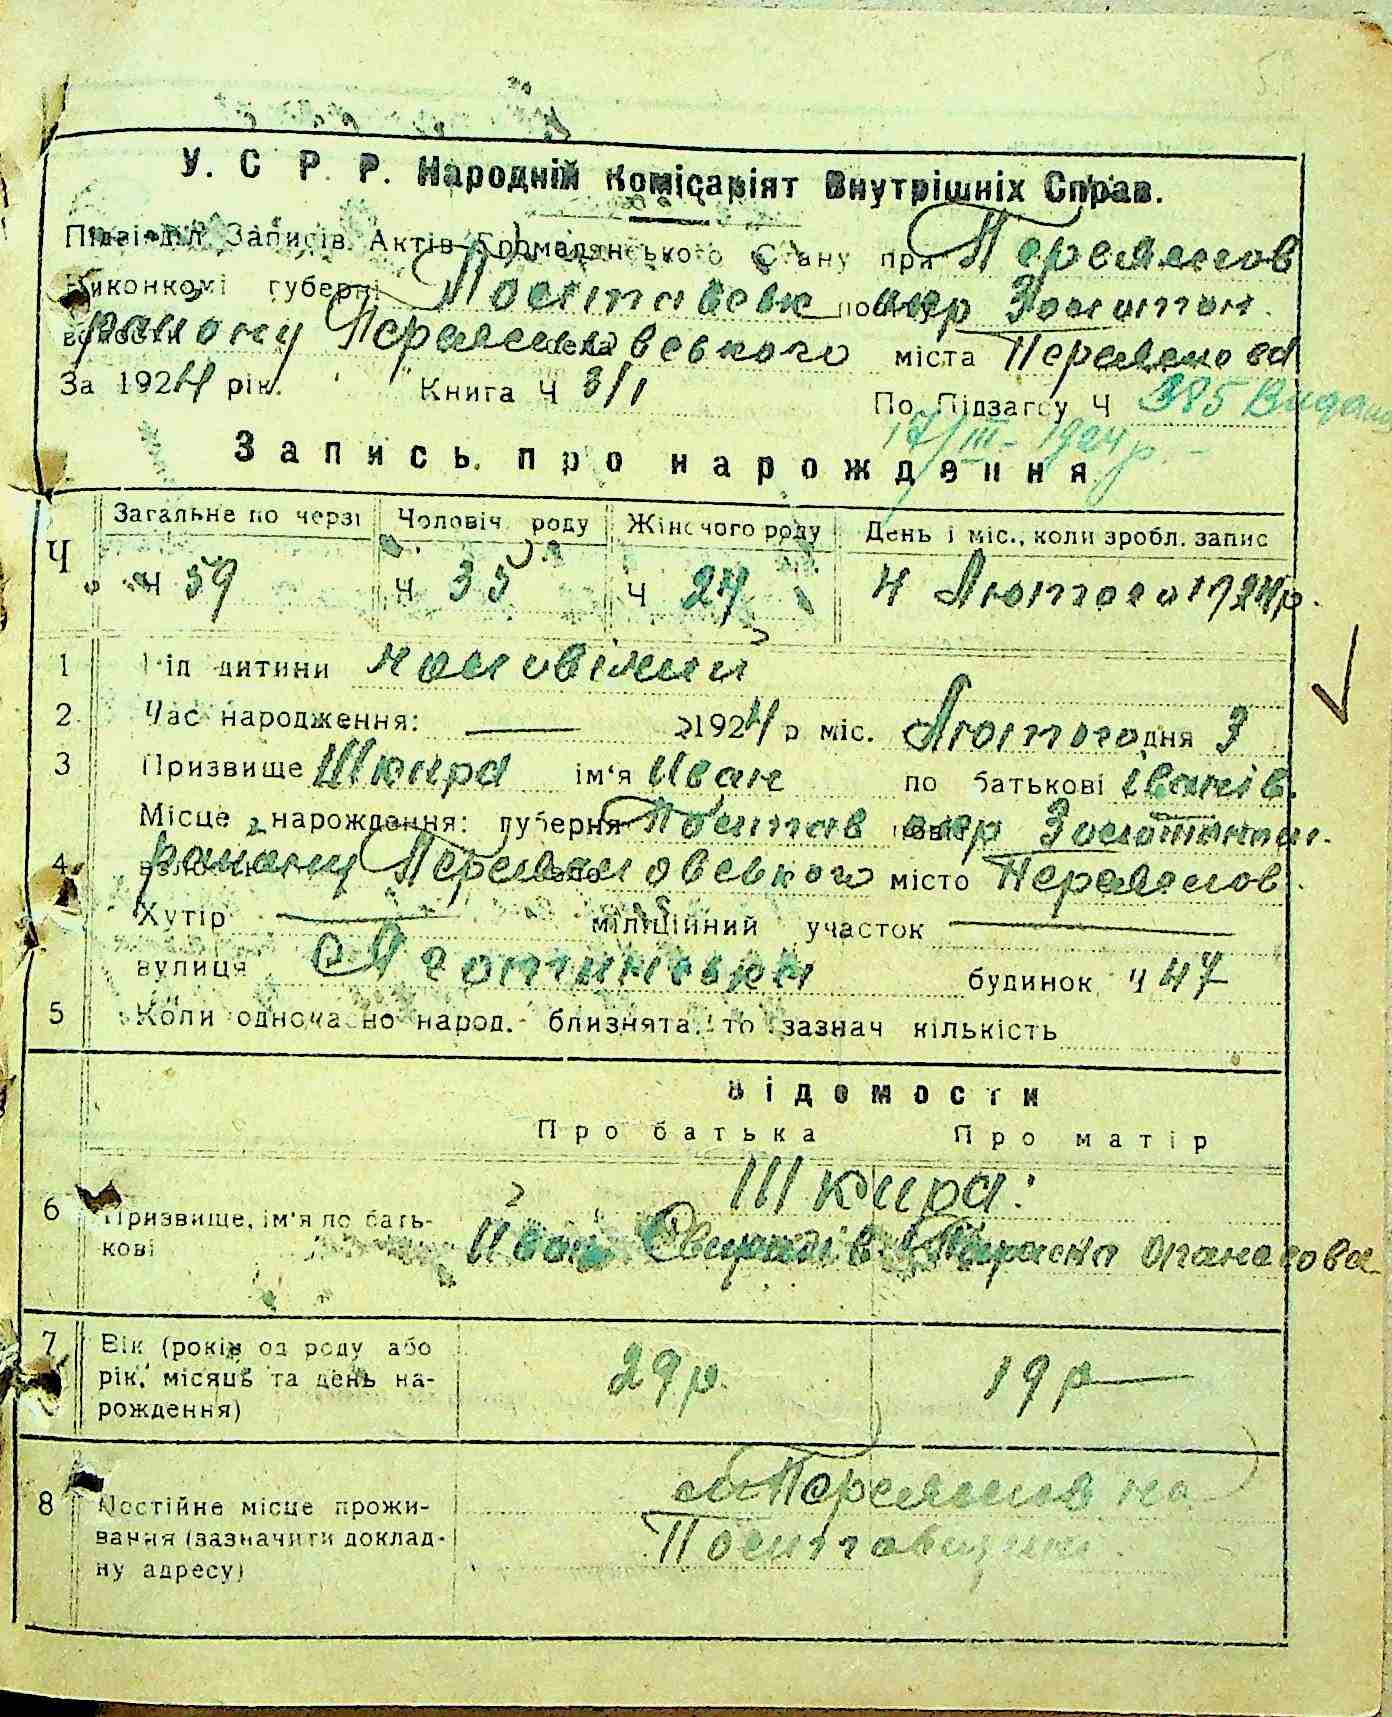 У. С Р. Р. Народній Комісаріят Внутрішніх Справ.
Підвідділ Записів Актів Громадянського Стану при Переяслов
Виконкомі губерні Полтавськ окр Золотон.
району Переясловського міста Переяслова
За 1924 рік. Книга Ч 3/1 По Підзагсу Ч 385 Видано
17/III - 1924 р. -
Запись про нарождення
Ч Загальне по черзі Чоловіч роду Жіночого роду День і міс., коли зробл. запис
Ч 59 Ч 35 Ч 24 4 Лютого 1924 р.
1 Рід дитини чоловічий
2 Час народження: 1924 р міс. Лютого дня 3
3 Призвище Шкира ім'я Иван по батькові іванів.
Місце нарождення: губерня Полтав окр Золотонош.
4 району Переясловського місто Переяслов.
Хутір міліційний участок
вулиця Яготинська будинок Ч 47
5 Коли одночасно народ. близнята, то зазнач кількість
Відомости
Про батька Про матір
Шкира:
6 Призвище, ім'я по бать-
кові Иван Свиридів Параска Опанасова
7 Вік (років од роду або
рік, місяць та день на- 29 р. 19 р
рождення)
8 Постійне місце прожи- м Переяслів на
вання (зазначити доклад- Полтавщині.
ну адресу)